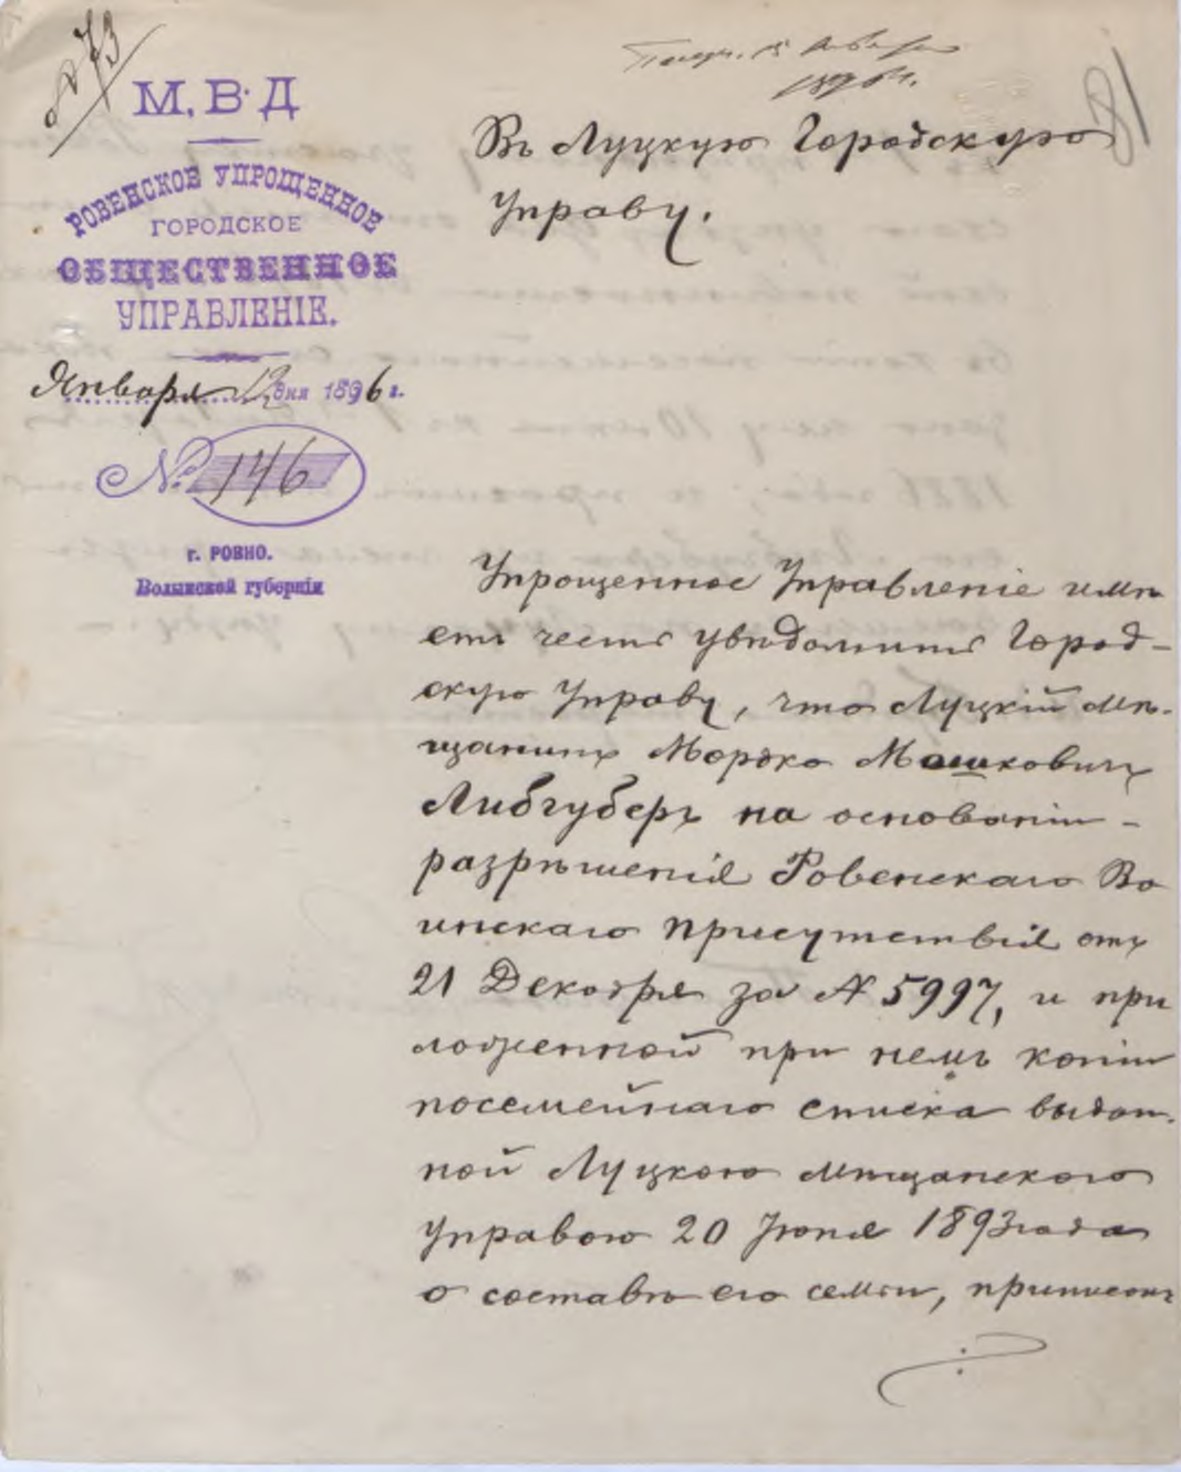 № 73
18
М. В. Д
РОВЕНСКОЕ УПРОЩЕННОЕ
ГОРОДСКОЕ
ОБЩЕСТВЕННОЕ
УПРАВЛЕНІЕ.
Января 12 дня 1896 г.
№ 146
г. РОВНО.
Волынской губерніи
Въ Луцкую Городскую
Управу.
Упрощенное Управленіе имѣ
етъ честь увѣдомить Город-
скую Управу, что Луцкій мѣ-
щанинъ Мордко Мошковичъ
Либгуберъ на основаніи -
разрѣшенія Ровенскаго Во
инскаго присутствія отъ
21 Декабря за № 5997, и при
ложенной при немъ копіи
посемейнаго списка выдан-
ной Луцкою мѣщанского
Управою 20 Іюня 1893 года
о составѣ его семьи, приписанъ